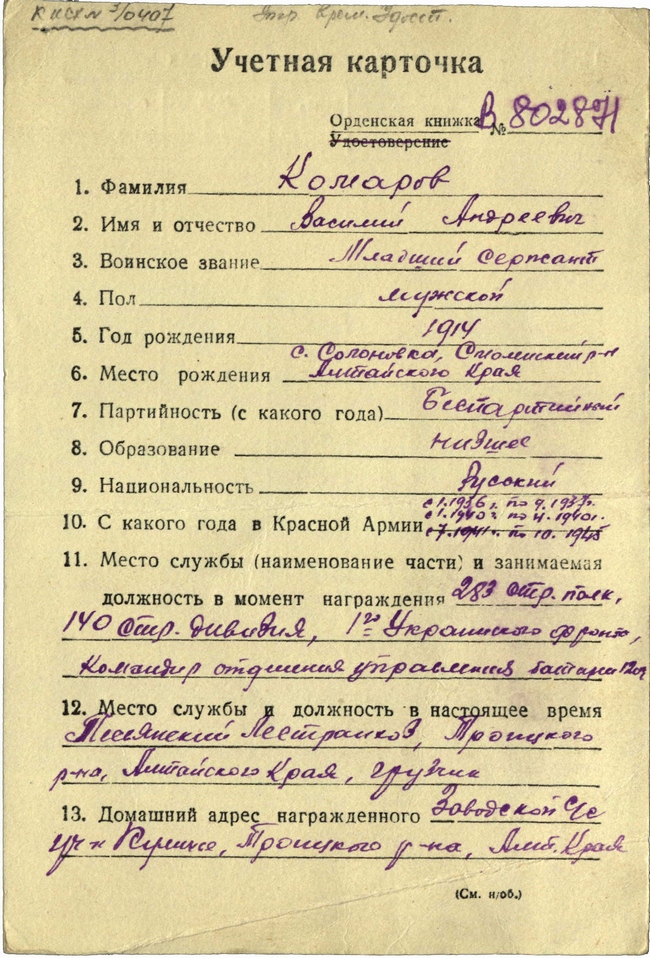 К иск № 3/0407
Учетная карточка
Орденская книжка № В 802871
Удостоверение
1. Фамилия Комаров
2. Имя и отчество Василий Андреевич
3. Воинское звание Младший Сержант
4. Пол мужской
5. Год рождения 1914
с. Солоновка, Смоленский р-н
6. Место рождения Алтайского Края
7. Партийность (с какого года) Беспартийный
8. Образование низшее
9. Национальность Русский
с 1.1936г. по 9.1937г.
с 1.1940г. по 4.1940г.
10. С какого года в Красной Армии с 7.1941г. по 10.1945
11. Место службы (наименование части) и занимаемая
должность в момент награждения 283 стр. полк,
140 стр. дивизия, 1го Украинского фронта,
командир отделения управления батареи 120
12. Место службы и должность в настоящее время
Леспромхоз, Троицкого
р-на, Алтайского Края, грузчик
13. Домашний адрес награжденного Заводской с/с
уч-к Троицкого р-на, Алт. Края
(См. н/об.)